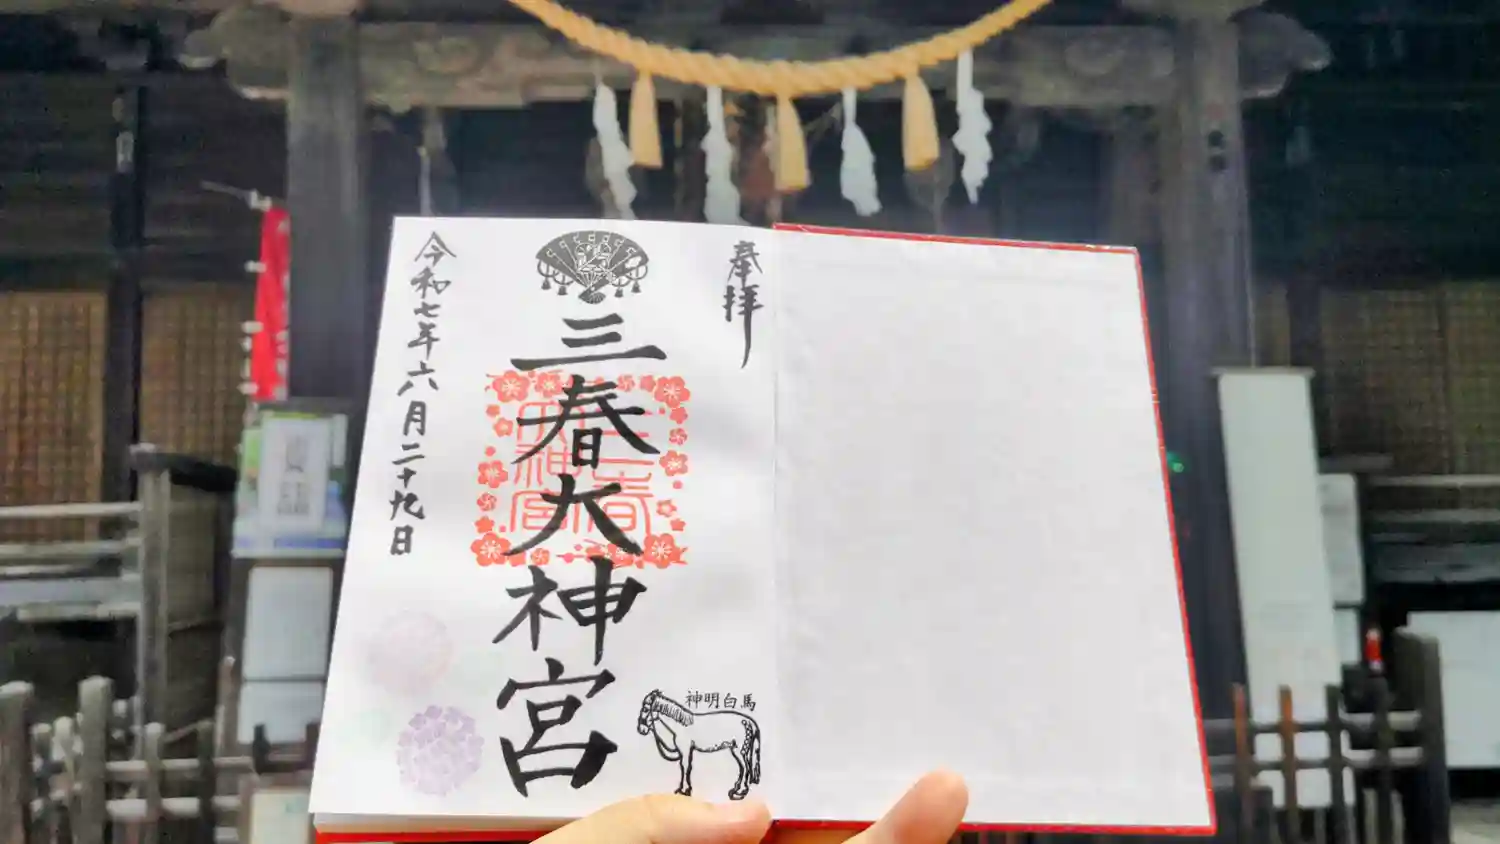 奉拝
三春大神宮
三春
大神宮
令和七年六月二十九日
神明白馬